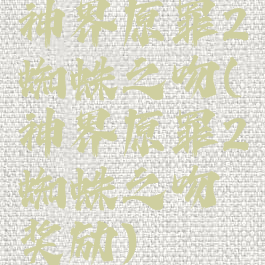 神界原罪2
蜘蛛之吻(
神界原罪2
蜘蛛之吻
奖励)